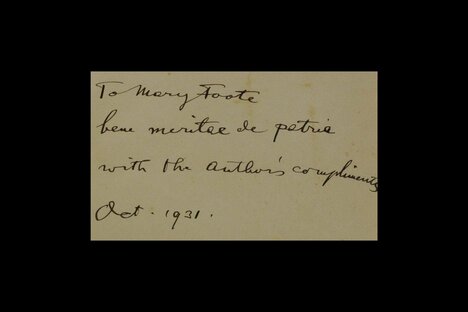 To Mary Foote
bene meritae de patria
with the Author's compliments
Oct. 1931.